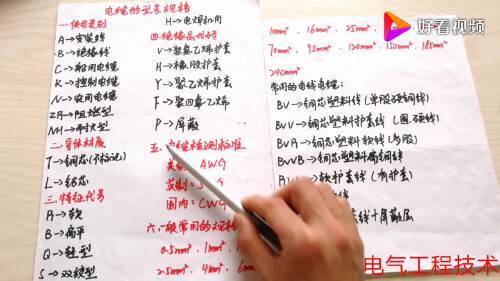 电缆的型号规格
一.使用类别
A→安装线
B→绝缘线
C→船用电缆
K→控制电缆
N→农用电缆
ZR→阻燃型
NH→耐火型
二.导体材质
T→铜芯(不标记)
L→铝芯
三.特征代号
R→软
B→扁平
Q→轻型
S→双绞型
H→电焊机用
四.绝缘层代号
V→聚氯乙烯护套
H→橡胶护套
Y→聚乙烯护套
F→聚四氟乙烯
P→屏蔽
五.电缆检测标准
AWG
英制:
国内:CWG
六.一般常用的规格
0.5mm².1mm²
2.5mm².4mm².6mm²
10mm².16mm².25mm²
70mm².95mm².120mm².150mm².185mm²
240mm²
常用的电线电缆:
BV→铜芯塑料线(单股硬铜线)
BVV→铜芯塑料护套线(圆.硬线)
BVR→铜芯塑料软线(多股)
BVVB→铜芯塑料扁铜线
软护套线(有护套)
线+屏蔽层
好看视频
电气工程技术